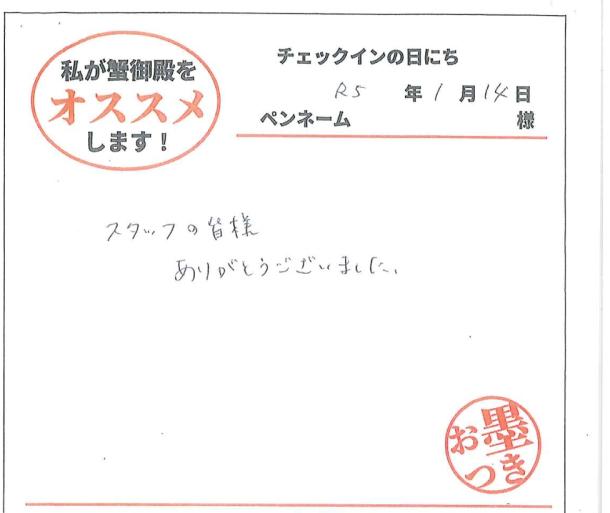 私が蟹御殿を
オススメ
します！
チェックインの日にち
R5 年 1 月 14 日
ペンネーム 様
スタッフの皆様
ありがとうございました。
お墨
つき